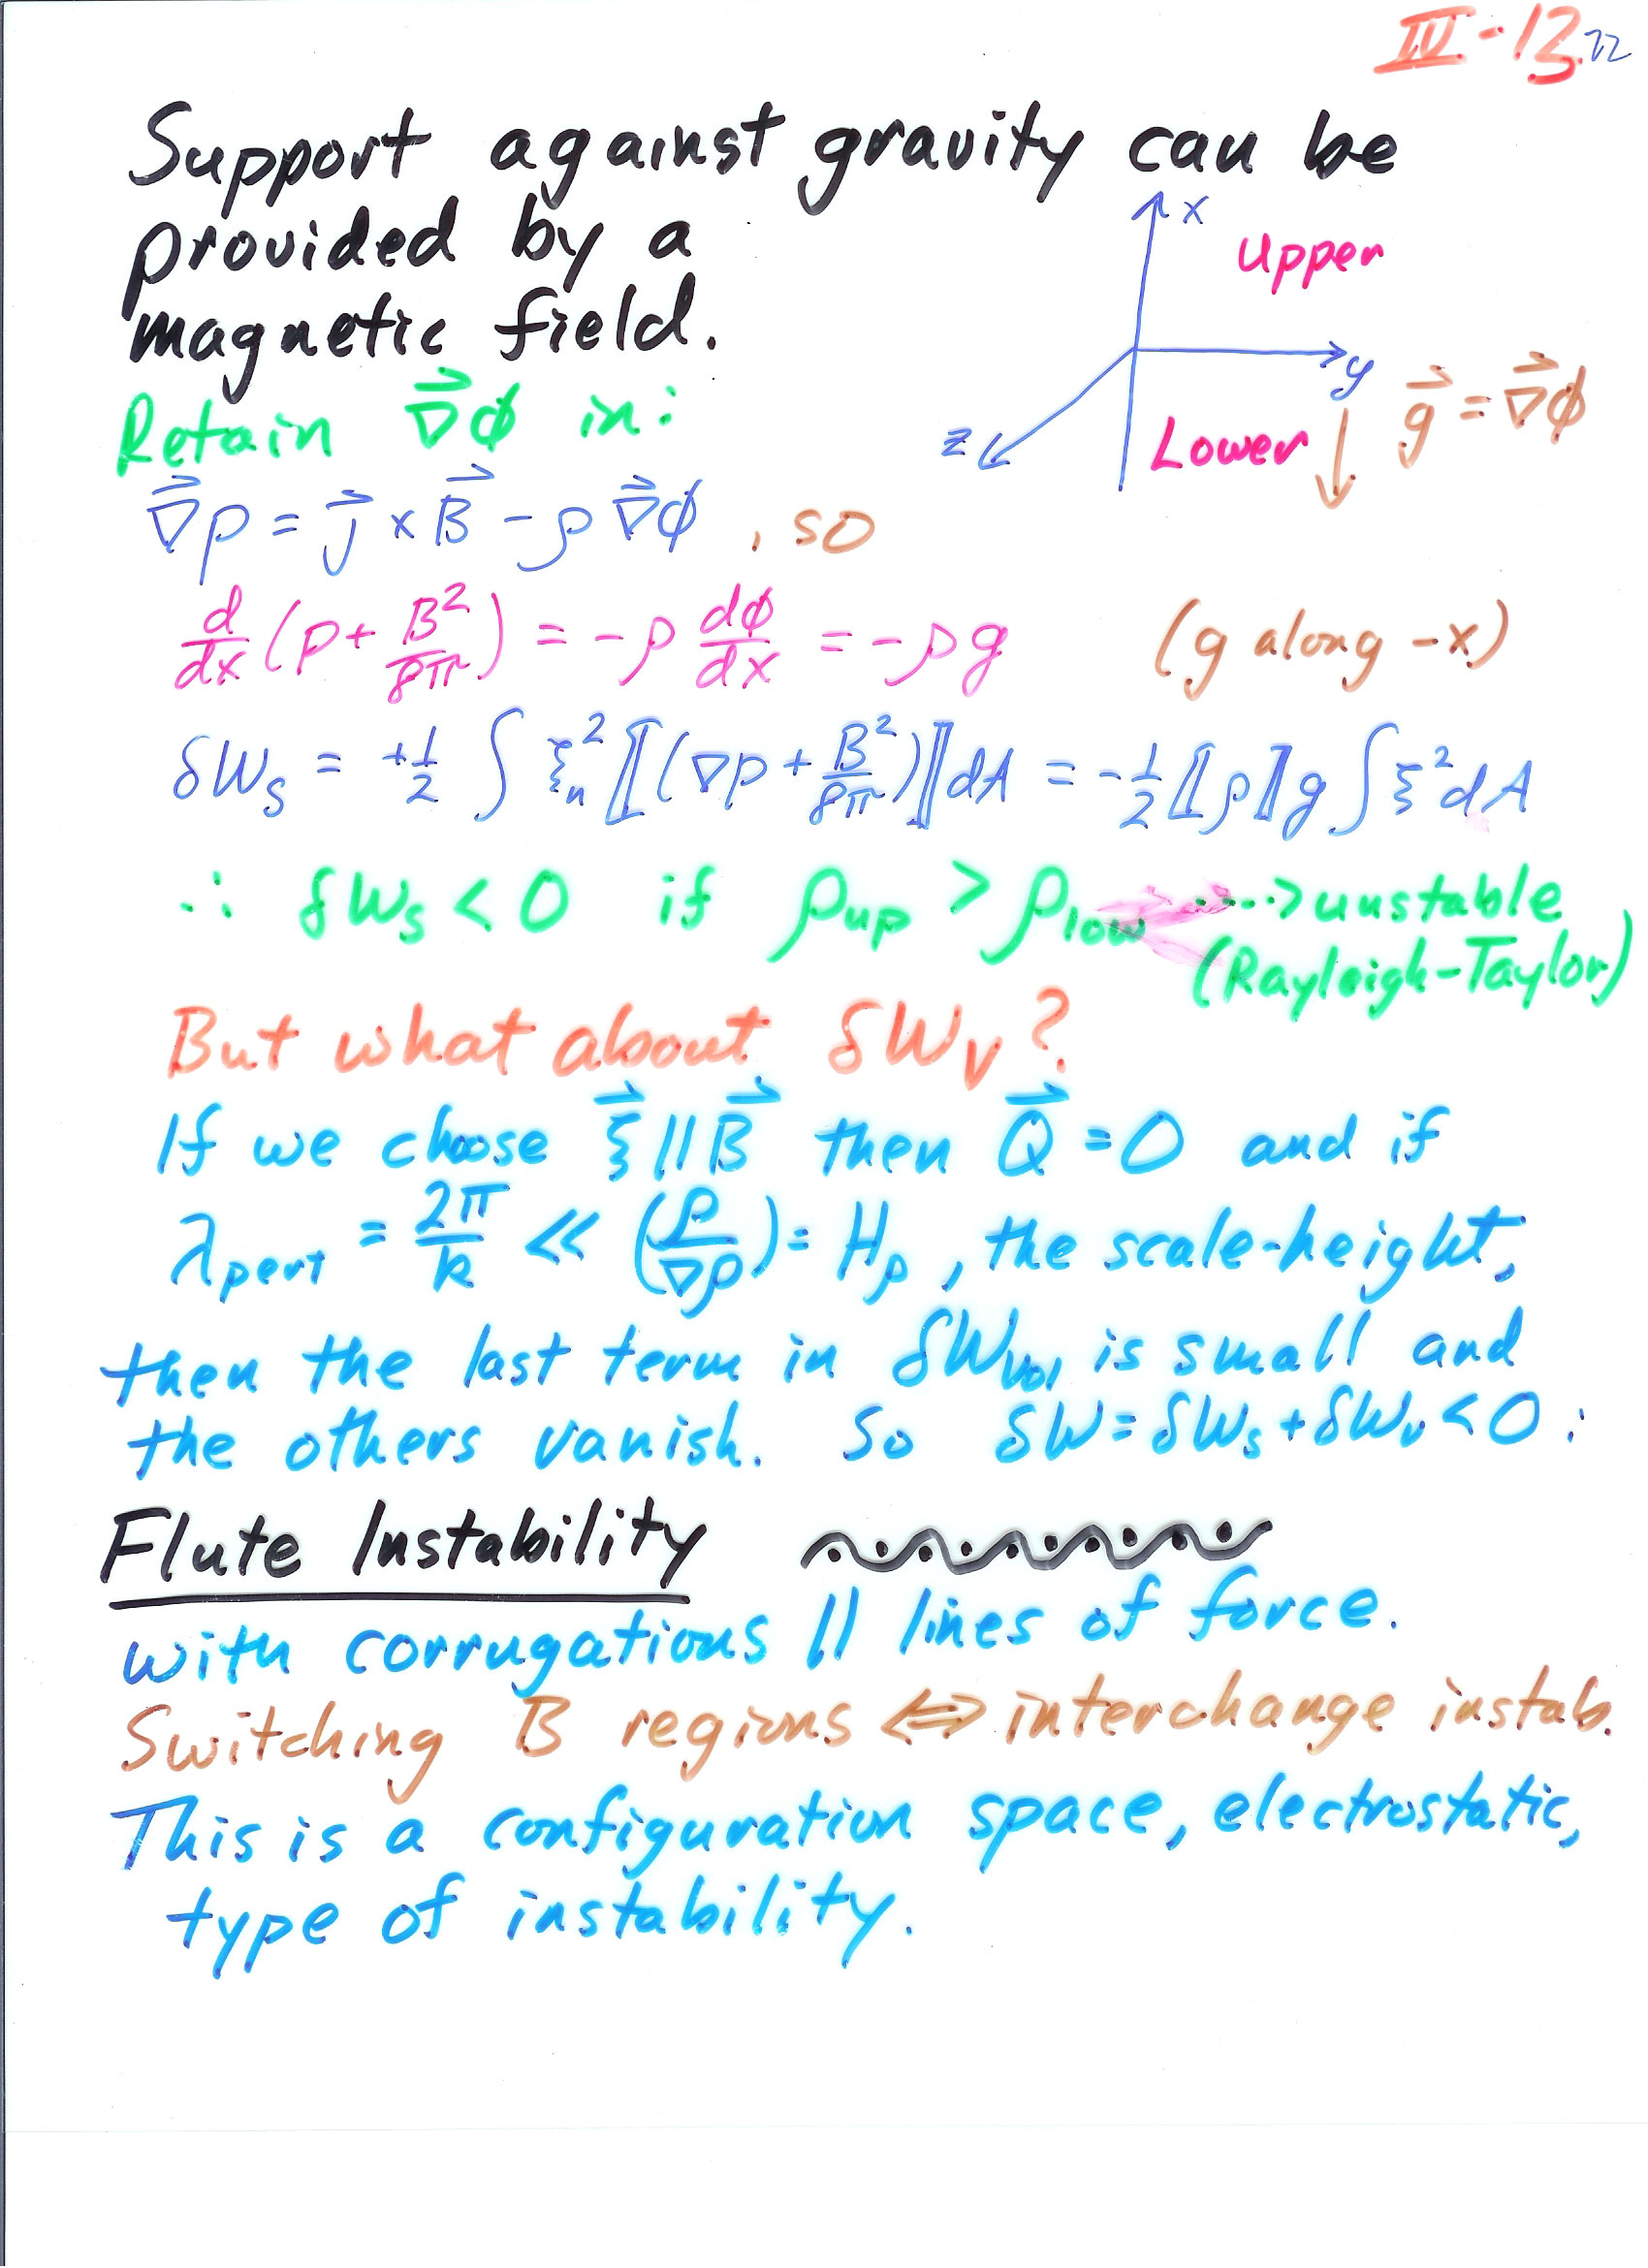 IV-13.22
Support against gravity can be
provided by a
magnetic field.
x
Upper
y
z
Lower
g⃗ = ∇⃗φ
Retain ∇⃗φ in:
∇⃗p = j⃗ × B⃗ - ρ ∇⃗φ , so
d/dx (p + B²/8π) = -ρ dφ/dx = -ρg (g along -x)
δW_S = +1/2 ∫ ξ_n² ⟦(∇p + B²/8π)⟧ dA = -1/2 ⟦ρ⟧ g ∫ ξ² dA
∴ δW_S < 0 if ρ_up > ρ_low ----> unstable
(Rayleigh-Taylor)
But what about δW_V?
If we choose ξ⃗ || B⃗ then Q⃗ = 0 and if
λ_pert = 2π/k << (ρ/∇ρ) = H_ρ, the scale-height,
then the last term in δW_Vol is small and
the others vanish. So δW = δW_S + δW_V < 0 :
Flute Instability
with corrugations || lines of force.
Switching B regions <=> interchange instab.
This is a configuration space, electrostatic,
type of instability.